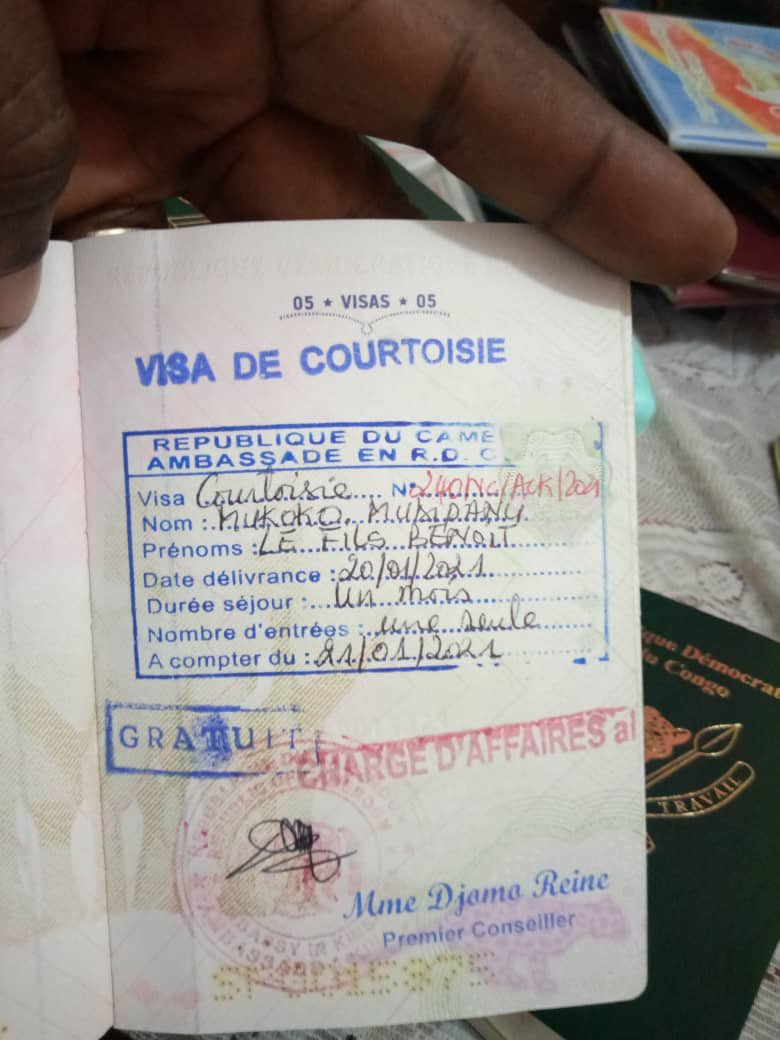 05 ★ VISAS ★ 05
VISA DE COURTOISIE
REPUBLIQUE DU CAME
AMBASSADE EN R.D. C
Visa Courtoisie N° 240/VC/ACK/2021
Nom : MUKOKO MUNDANU
Prénoms : LE FILS BENOIT
Date délivrance : 20/01/2021
Durée séjour : Un mois
Nombre d'entrées : une seule
A compter du : 21/01/2021
GRATUIT
CHARGE D'AFFAIRES aI
Mme Djomo Reine
Premier Conseiller
que Démocrat
du Congo
TRAVAIL